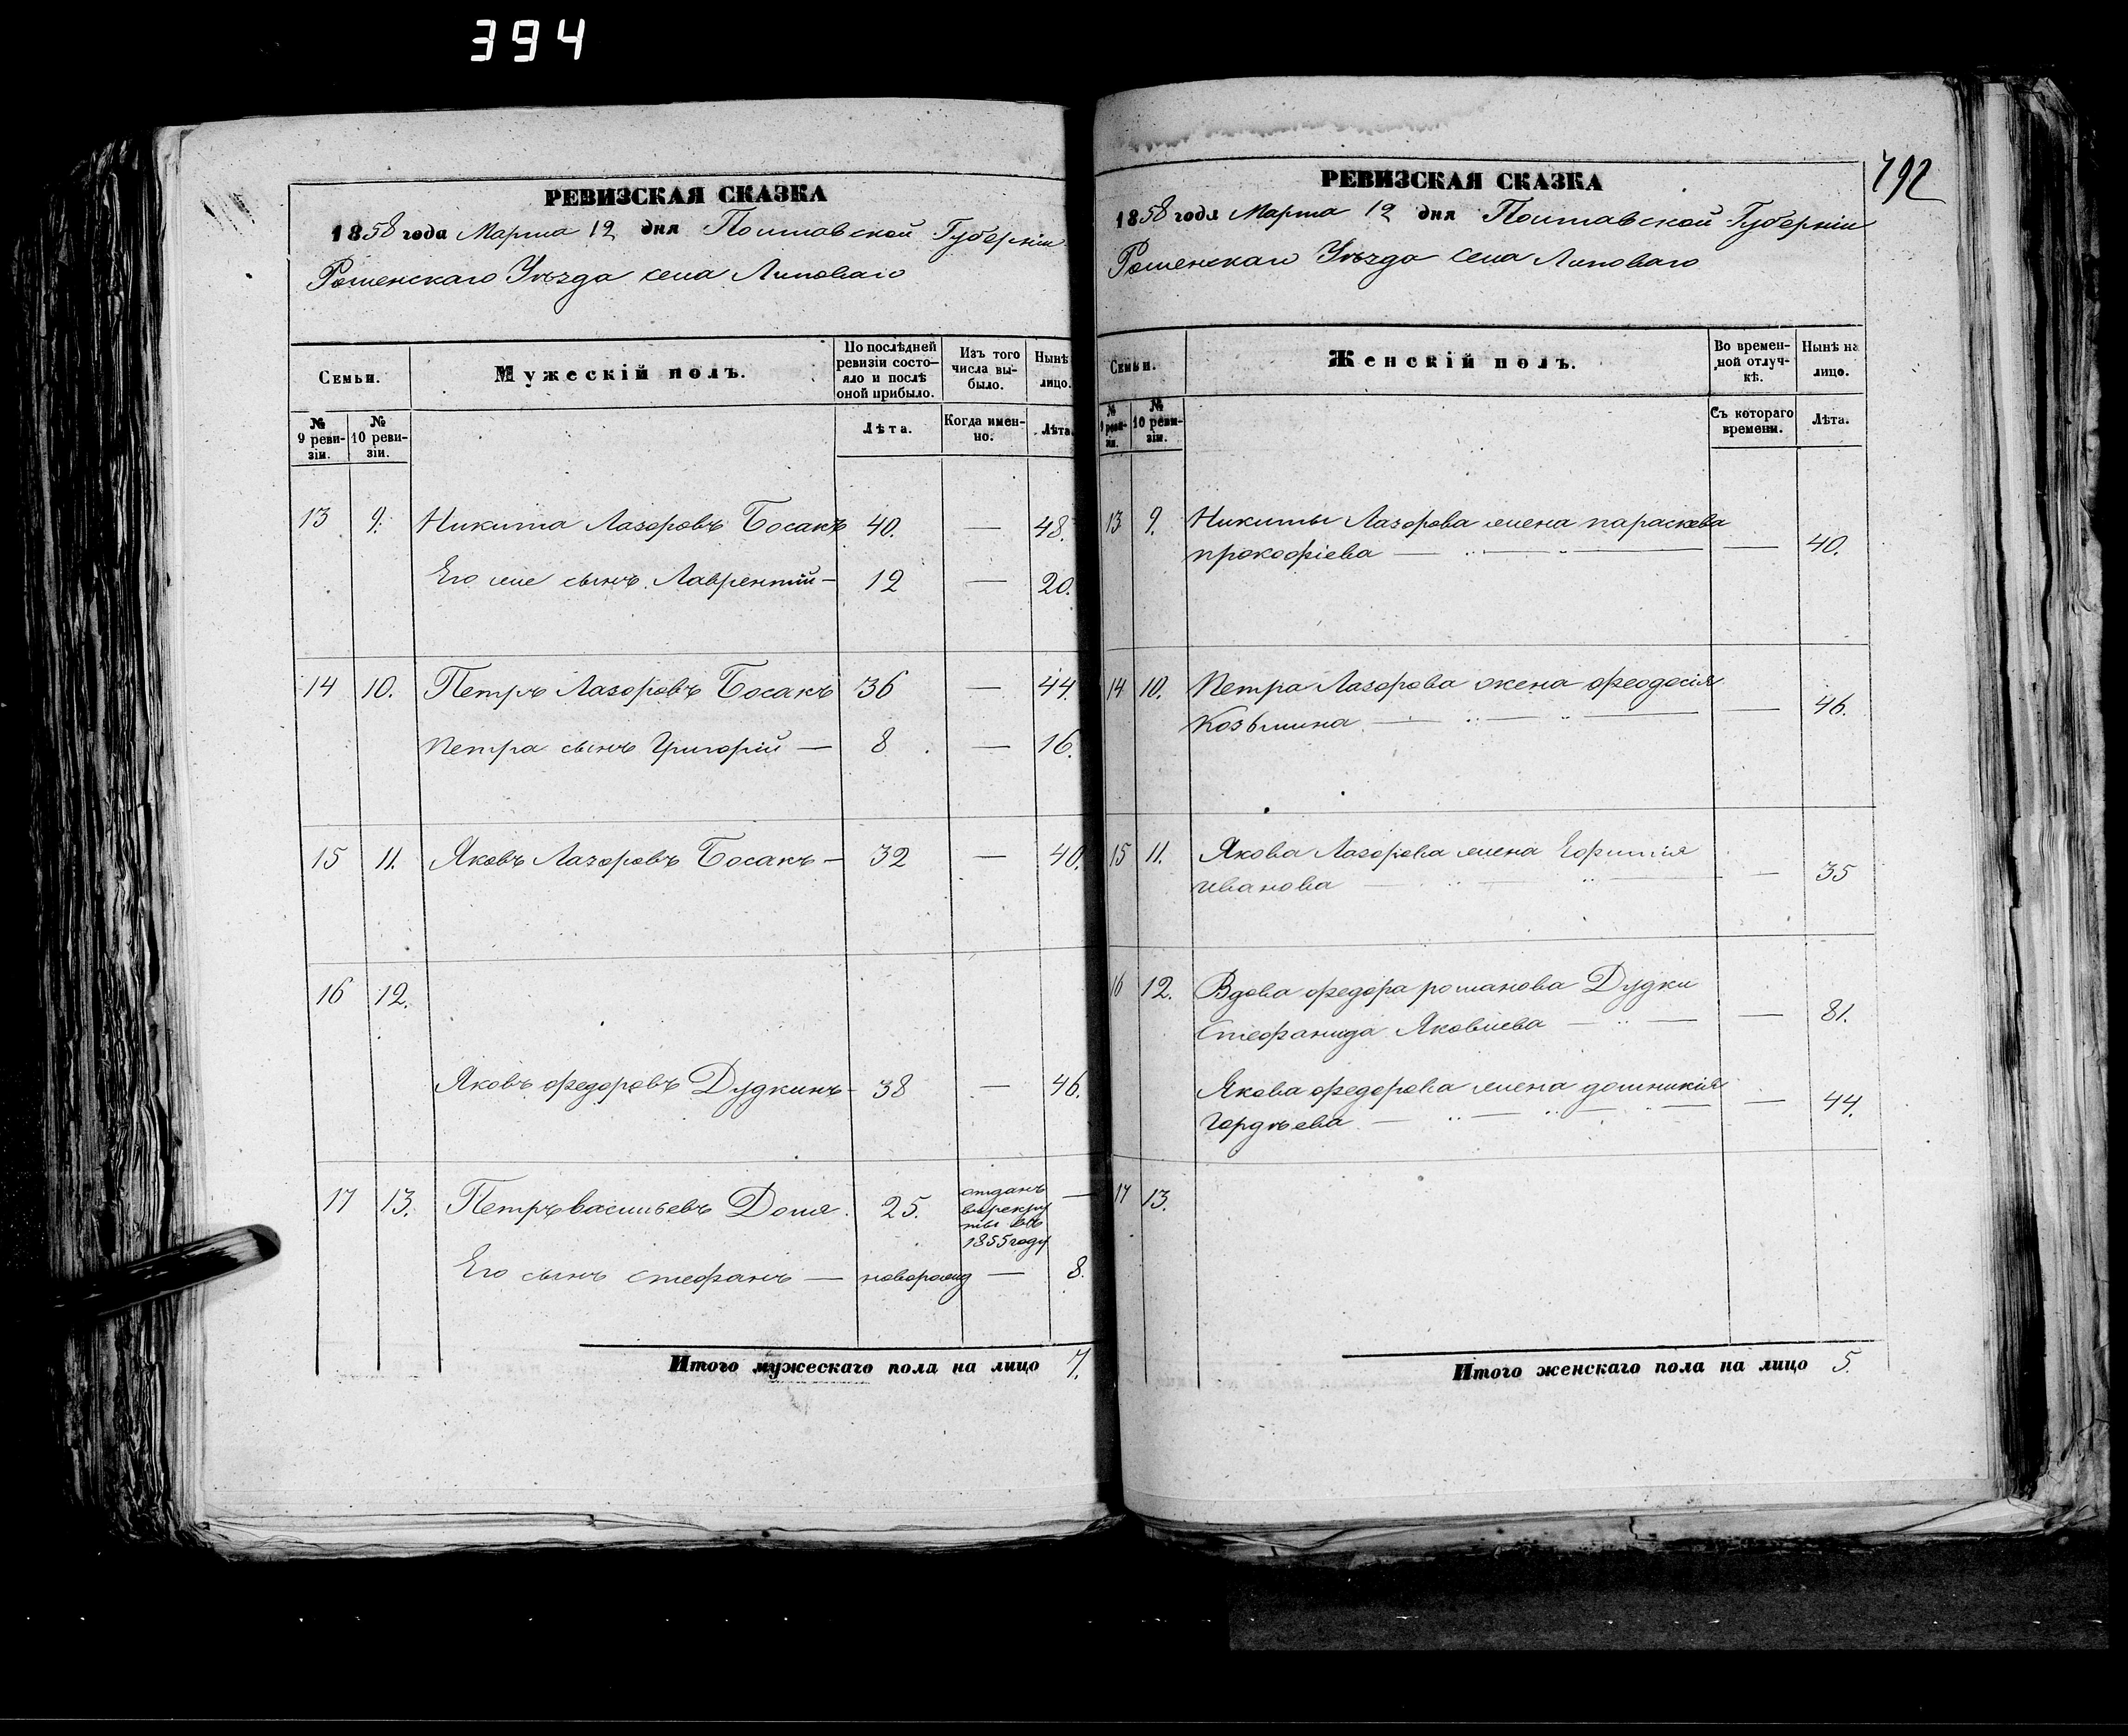 394
РЕВИЗСКАЯ СКАЗКА
1858 года Марта 12 дня Полтавской Губерніи
Роменскаго Уѣзда села Липоваго
Семьи.
Мужескій полъ.
По послѣдней ревизіи состояло и послѣ оной прибыло.
Изъ того числа выбыло.
Нынѣ лицо.
№ 9 ревизіи.
№ 10 ревизіи.
Лѣта.
Когда именно.
Лѣта.
13 9. Никита Лазоровъ Босакъ 40. — 48.
Его же сынъ Лаврентій — 12 — 20.
14 10. Петръ Лазоровъ Босакъ 36 — 44.
Петра сынъ Григорій — 8 — 16.
15 11. Яковъ Лазоровъ Босакъ — 32 — 40.
16 12.
Яковъ Федоровъ Дудкинъ — 38 — 46.
17 13. Петръ Васильевъ Доля 25. отданъ —
в рекру
ты въ
1855 году
Его сынъ Стефанъ — новорожд — 8.
Итого мужескаго пола на лицо 7.
792
РЕВИЗСКАЯ СКАЗКА
1858 года Марта 12 дня Полтавской Губерніи
Роменскаго Уѣзда села Липоваго
Семьи.
Женскій полъ.
Во временной отлучкѣ.
Нынѣ на лицо.
№ 9 ревизіи.
№ 10 ревизіи.
Съ котораго времени.
Лѣта.
13 9. Никиты Лазорова жена Параскева
Прокофіева — — 40.
14 10. Петра Лазорова жена Феодосія
Козьмина — — 46.
15 11. Якова Лазорова жена Ефимія
Иванова — — 35
16 12. Вдова Федора Романова Дудки
Стефанида Яковлева — — 81.
Якова Федорова жена Домникія
Гордѣева — — 44.
17 13.
Итого женскаго пола на лицо 5.